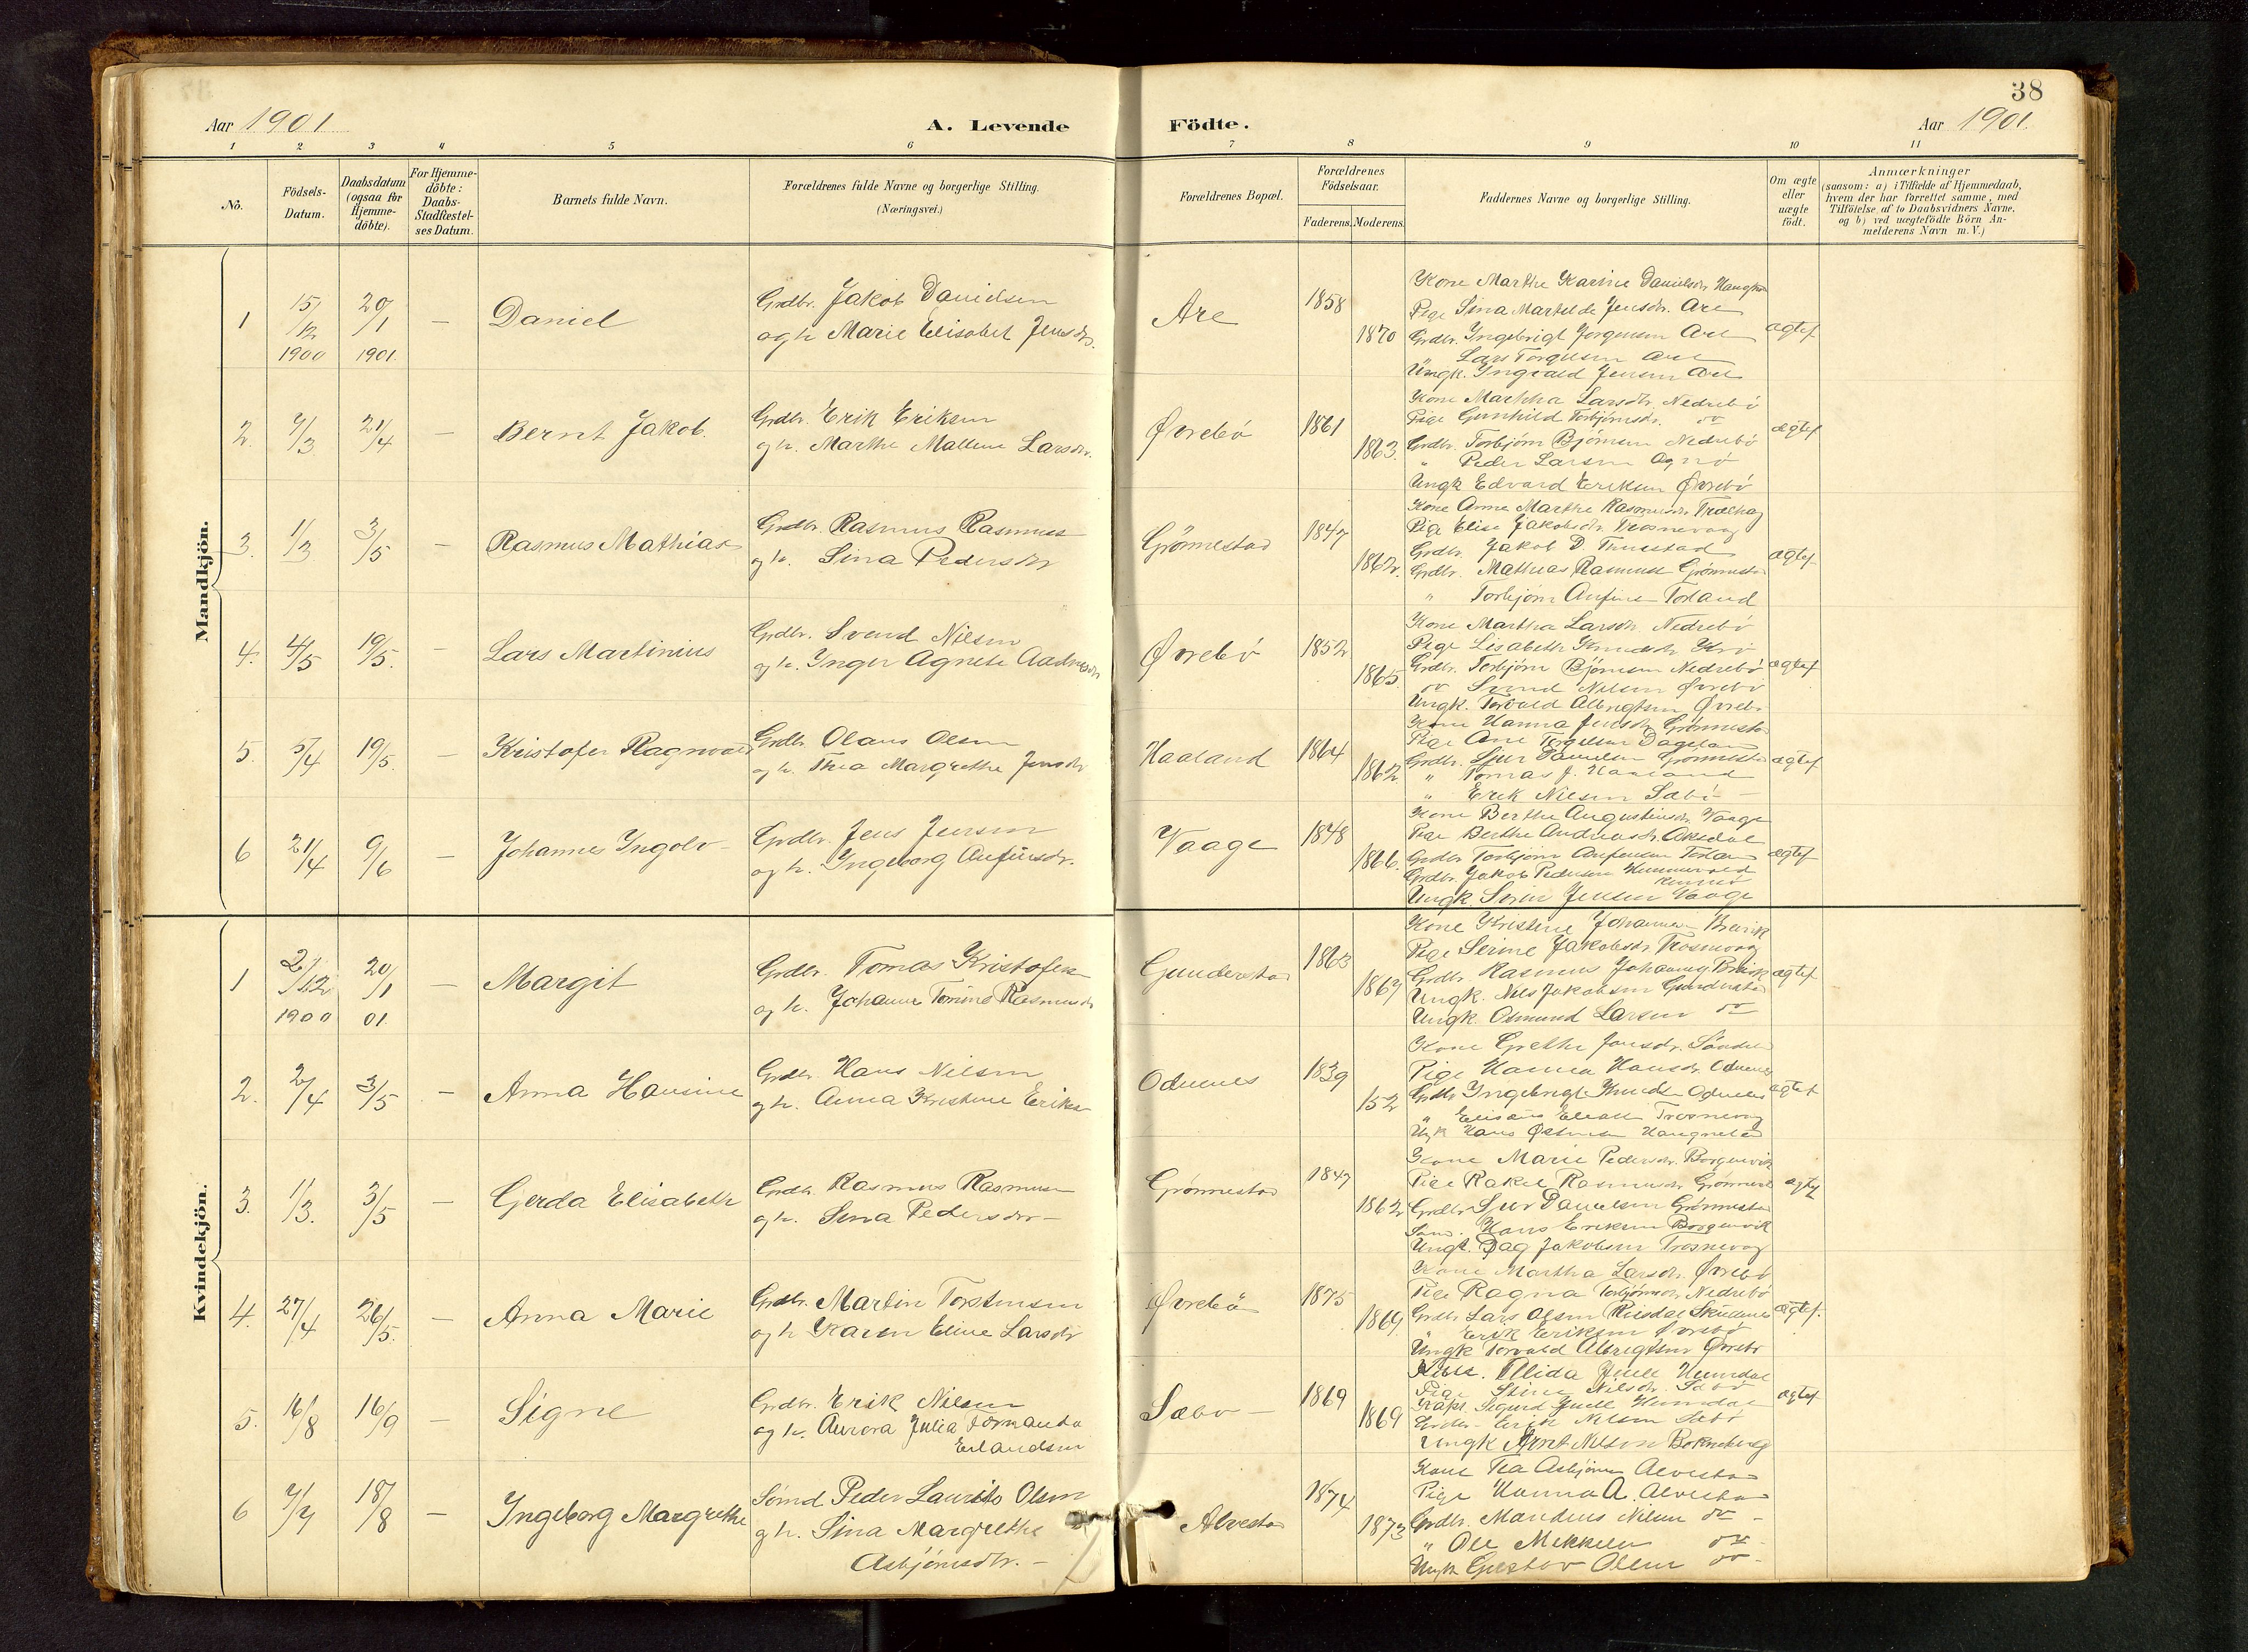 38
Aar 1901
A. Levende
Födte.
Aar 1901.
1 2 3 4 5 6 7 8 9 10 11
No.
Födsels-Datum.
Daabsdatum (ogsaa for Hjemme-döbte).
For Hjemme-döbte: Daabs-Stadfæstel-ses Datum.
Barnets fulde Navn.
Forældrenes fulde Navne og borgerlige Stilling.
(Næringsvei.)
Forældrenes Bopæl.
Forældrenes Födselsaar.
Faderens. Moderens.
Faddernes Navne og borgerlige Stilling.
Om ægte eller uægte födt.
Anmærkninger
(saasom: a) i Tilfælde af Hjemmedaab,
hvem der har forrettet samme, med
Tilföielse af to Daabsvidners Navne,
og b) ved uægtefödte Börn An-
melderens Navn m. V.)
Mandkjön.
1 15/12 1900 20/1 1901. — Daniel
Grdbr. Jakob Danielsen
og h Marie Elisabet Jensdr.
Are 1858 1870
Kone Marthe Karine Danielsdr.
Pige Sina Mathilde Jensdr. Are
Grdbr. Ingebrigt Jorgensen Are
" Lars Torgersen Are
Ungk. Ingvald Jensen Are
ægtef
2. 7/3 21/4 — Bernt Jakob.
Grdbr. Erik Eriksen
og h. Marthe Mallene Larsdr.
Øvrebö 1861 1863.
Kone Martha Larsdtr. Nedrebö
Pige Gunhild Torbjörnsdr. do
Grdbr. Torbjörn Björnsen Nedrebö
" Peder Larsen
Ungk Edvard Eriksen Øvrebö
ægtef
3. 1/3 3/5 — Rasmus Mathias
Grdbr. Rasmus Rasmusen
og h. Sina Pedersdr
Grönnestad 1847 1862.
Kone Anne Marthe Rasmusdr.
Pige Elise Jakobsdr. Trosnevag
Grdbr. Jakob D.
Grdbr. Mathias Rasmusen Grönnestad
" Torbjörn Anfinsen Torland
ægtef
4. 4/5 19/5. — Lars Martinius
Grdbr. Svend Nilsen
og h. Inger Agnete Aadnesdr
Øvrebö 1852 1865.
Kone Martha Larsdr. Nedrebö
Pige Lisabeth Knudsdr.
Grdbr. Torbjörn Björnsen Nedrebö
do Svend Nilsen Øvrebö
Ungk. Torvald Albrigtsen Øvrebö
ægtef
5. 5/4 19/5. — Kristofer Ragnvald
Grdbr. Olaus Olsen
og h. Thea Margrethe Jensdr
Haaland 1864 1862.
Kone Hanna Jensdr. Grönnestad
Pige Ane Torgelsen
Grdbr. Sjur Danielsen Grönnestad
" Tomas J. Haaland
" Erik Nilsen Sæbö
ægtef
6 21/4 9/6 — Johannes Ingolv
Grdbr. Jens Jensen
og h. Ingeborg Anfinsdr.
Vaage 1848 1866.
Kone Berthe Augustinsdr. Vaage
Pige Berthe Andreasdr. Aksdal
Grdbr. Torbjörn Anfinsen Torland
Grdbr. Jakob Pedersen
Ungk. Sören Jensen Vaage
ægtef
Kvindekjön.
1 2/12 1900 20/1 01 — Margit
Grdbr. Tomas Kristofersen
og h. Johanne Tomine Rasmusdr
Gunderstad 1863 1867
Kone Kristine Johannesen
Pige Serine Jakobsdr. Trosnevag
Grdbr. Rasmus Johannes
Ungk. Nils Jakobsen Gunderstad
Ungk. Osmund Larsen do
ægtef
2. 2/4 3/5 — Anna Hansine
Grdbr. Hans Nilsen
og h. Anna Kristine Eriksdr
Odnenes 1839 152
Kone Grethe Jonsdr.
Pige Hanna Hansdr. Odnenes
Grdbr. Ingebrigt Knudsen Odnenes
" Elisæus Trosnevag
Ungk Hans Østensen
ægtef
3. 1/3. 3/5 — Gerda Elisabeth
Grdbr. Rasmus Rasmusen
og h. Sina Pedersdr —
Grönnestad 1847 1862
Kone Marie Pedersdr. Borgenvik
Pige Rakel Rasmusdr. Grönnestad
Grdbr. Sjur Danielsen Grönnestad
Sömd. Hans Eriksen Borgenvik
Ungk. Dag Jakobsen Trosnevag
ægtef
4. 27/4 26/5. — Anna Marie
Grdbr. Martin Torstensen
og h Karen Eline Larsdr
Øvrebö 1875 1869
Kone Martha Larsdr. Øvrebö
Pige Ragna Torbjörnsdr. Nedrebö
Grdbr. Lars Olsen
" Erik Eriksen Øvrebö
Ungk Torvald Albrigtsen Øvrebö
ægtef.
5. 16/8 16/9 — Signe
Grdbr. Erik Nilsen
og h. Aurora Julia Normanda
Erlandsen
Sæbö — 1869 1869
Kone. Alida Juell
Pige Stine Nilsdr. Sæbö
Sigurd Juell
Grdbr. Erik Nilsen Sæbö
Ungk Arnt Nilsen
ægtef
6 7/7 18/8 — Ingeborg Margrethe
Sömd Peder Laurits Olsen
og h. Sina Margrethe
Asbjörnsdtr. —
Alvestad 1874 1873
Kone Tea Asbjörnsen Alvestad
Pige Hanna A. Alvestad
Grdbr. Mandius Nilsen do —
" Ole Mikkelsen do —
Ungk Gustav Olsen do —